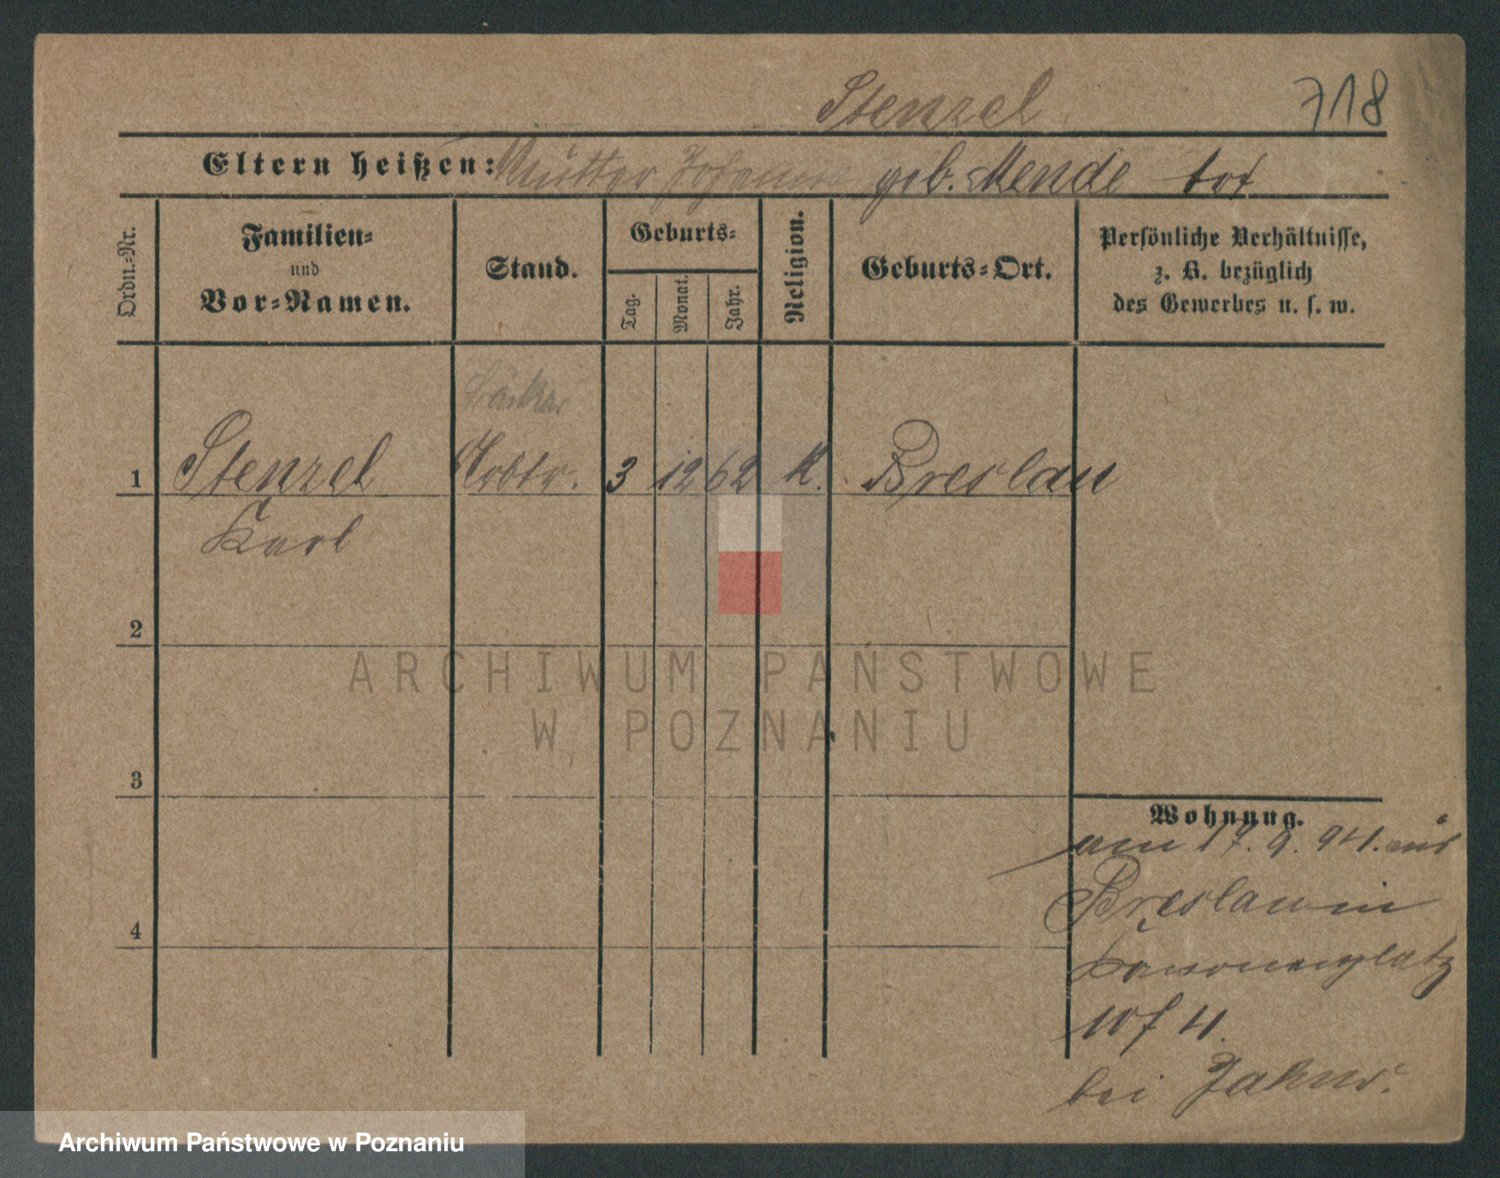 Stenzel 718
Eltern heißen: Mutter Johanna geb. Mende tot
Ordn.-Nr.
Familien-
und
Vor-Namen.
Stand.
Geburts-
Tag.
Monat.
Jahr.
Religion.
Geburts-Ort.
Persönliche Verhältnisse,
z. B. bezüglich
des Gewerbes u. s. w.
Bäcker
1 Stenzel Arbtr. 3 12 62 K. Breslau
Karl
2
3
4
Wohnung.
am 17. 9. 94. aus
Breslau in
Kanonenplatz
4.
bei
ARCHIWUM PAŃSTWOWE
W POZNANIU
Archiwum Państwowe w Poznaniu